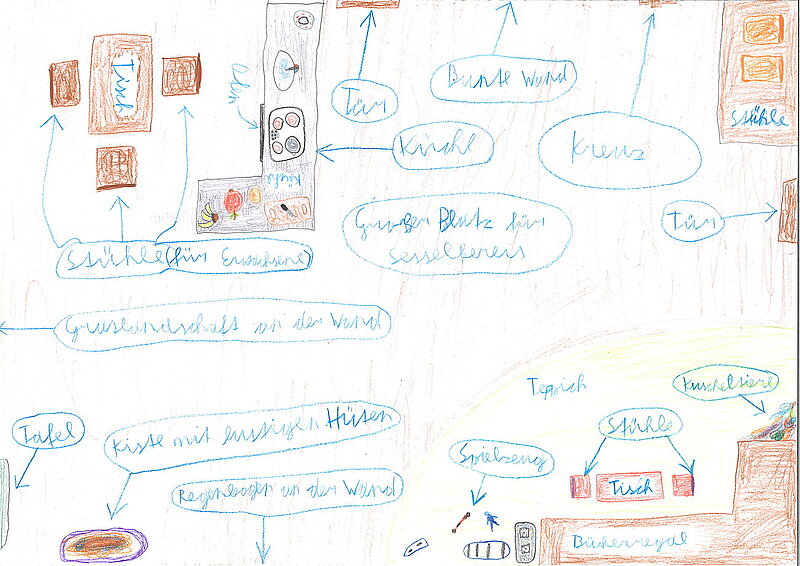 Tisch
Ofen
Tür
Bunte Wand
Stühle
Küche
Kreuz
Küche
Großer Platz für
Sesselkreis
Tür
Stühle (für Erwachsene)
Graslandschaft an der Wand
Teppich
Kuscheltiere
Tafel
Kiste mit lustigen Hüten
Stühle
Spielzeug
Regenbogen an der Wand
Tisch
Bücherregal